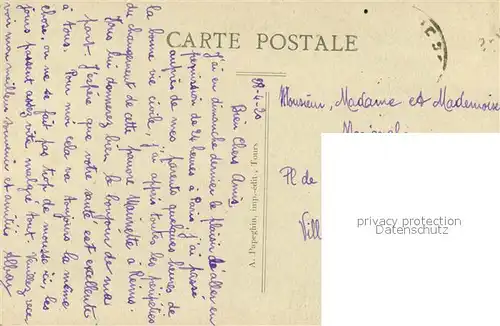 CARTE POSTALE
28-4-20
Bien Chers Amis,
J'ai eu dimanche dernier le plaisir d'aller en
permission de 24 heures à Paris, j'ai passé
auprès de mes parents quelques heures de
la bonne vie civile, j'ai appris toutes les péripéties
du changement de cette pauvre Henriette à Reims.
Vous lui donnerez bien le bonjour de ma
part. J'espère que votre santé est excellente
à tous. Pour moi cela va toujours la même
chose, on ne se fait pas trop de mousse ici, les
jours passent assez vite malgré tout. Veuillez rece
voir mon meilleur souvenir et amitiés
A. Papeghin, imp.-édit., Tours
Monsieur, Madame et Mademoise
Pl de
Vill
privacy protection
Datenschutz